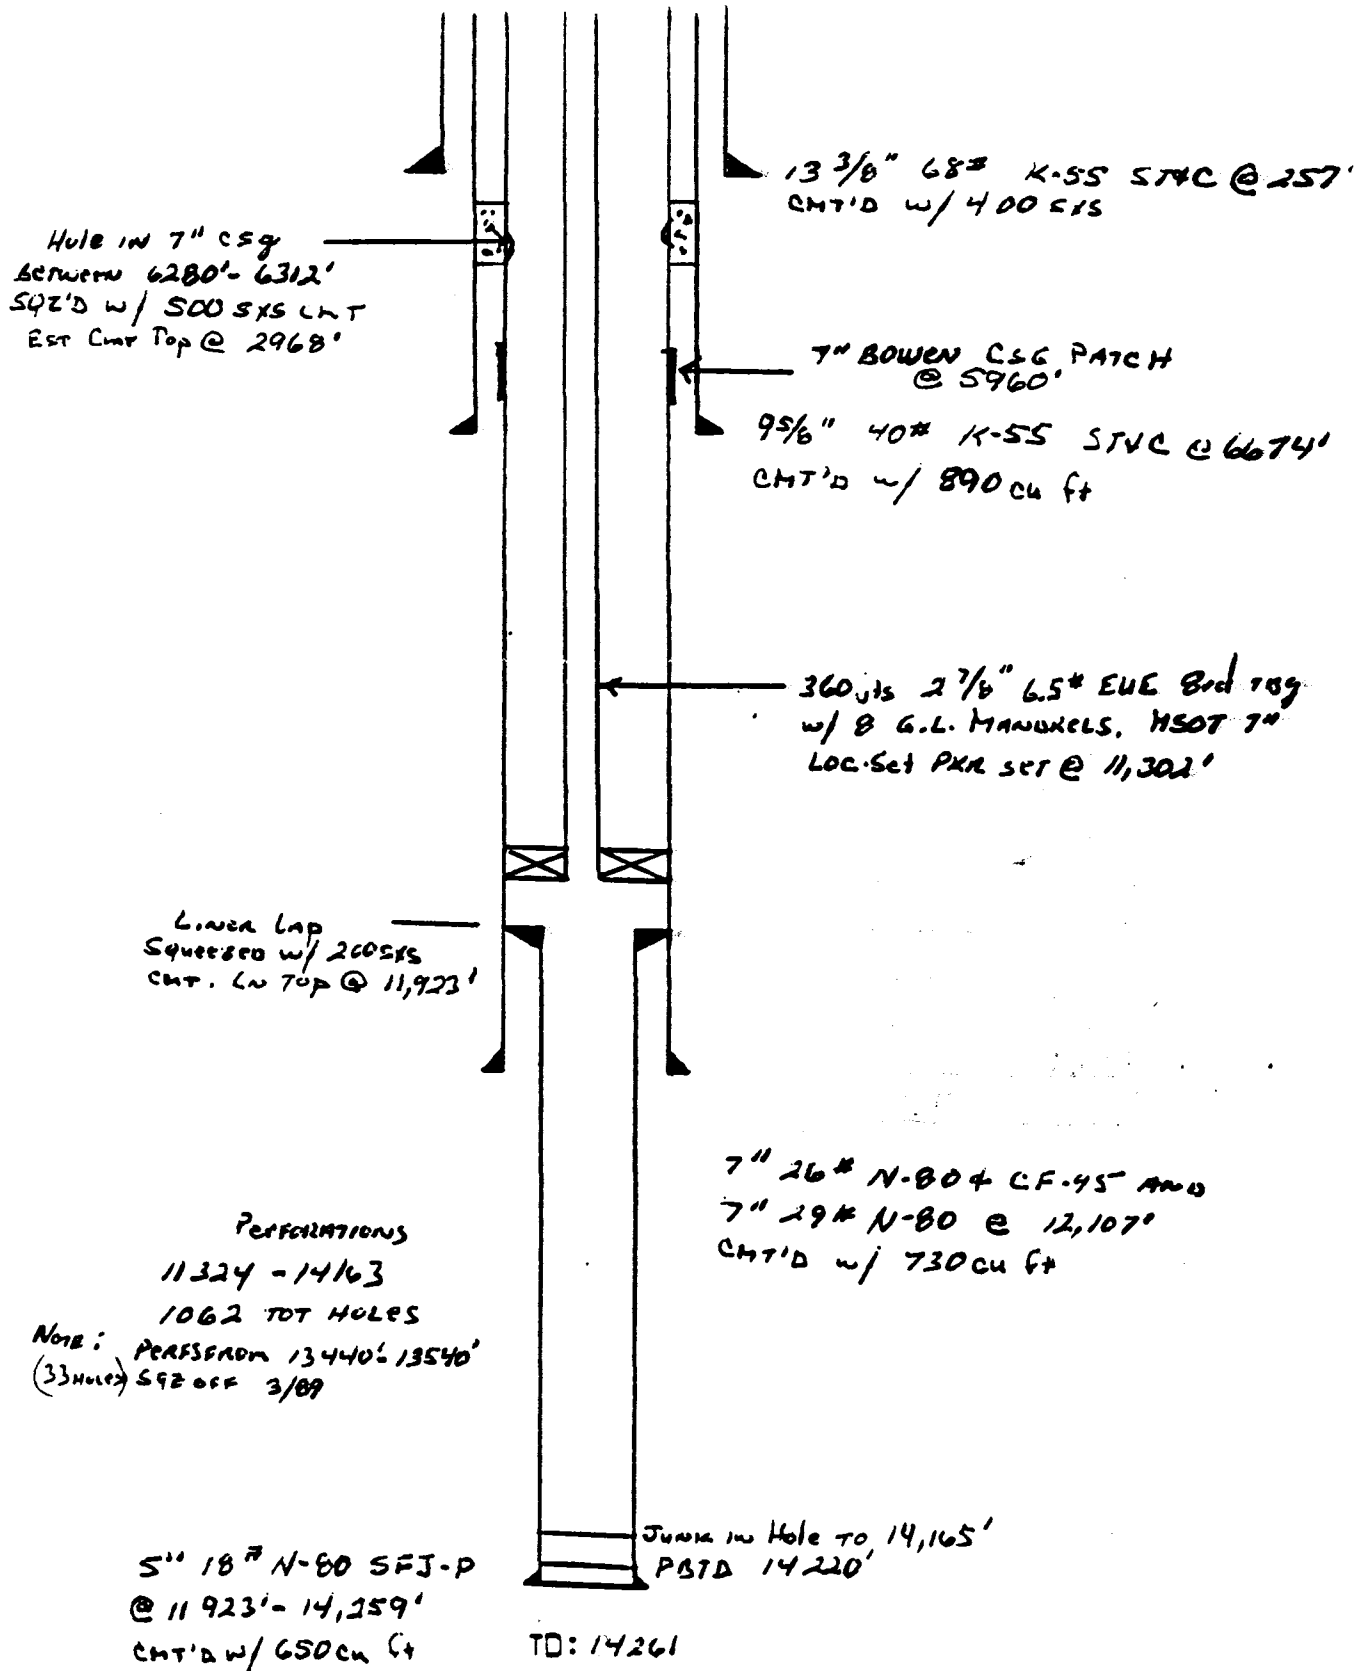 13 3/8" 68# K-55 ST&C @ 257'
CMT'D w/ 400 sxs
Hole in 7" csg
Between 6280'- 6312'
SQZ'D w/ 500 sxs CMT
Est Cmt Top @ 2968'
7" BOWEN CSG PATCH
@ 5960'
9 5/8" 40# K-55 ST&C @ 6674'
CMT'D w/ 890 cu ft
360 jts 2 7/8" 6.5# EUE 8rd TBg
w/ 8 G.L. MANDRELS. HSOT 7"
Loc-Set PKR set @ 11,302'
Liner Lap
Squeezed w/ 260 sxs
CMT. Ln Top @ 11,923'
7" 26# N-80 & CF-95 AND
7" 29# N-80 @ 12,107'
CMT'D w/ 730 cu ft
Perforations
11324 - 14163
1062 TOT HOLES
Note: Perfs from 13440'- 13540'
(33 Holes) SQZ OFF 3/89
Junk in Hole To 14,165'
PBTD 14220'
5" 18# N-80 SFJ-P
@ 11 923'- 14,259'
CMT'D w/ 650 cu ft
TD: 14261